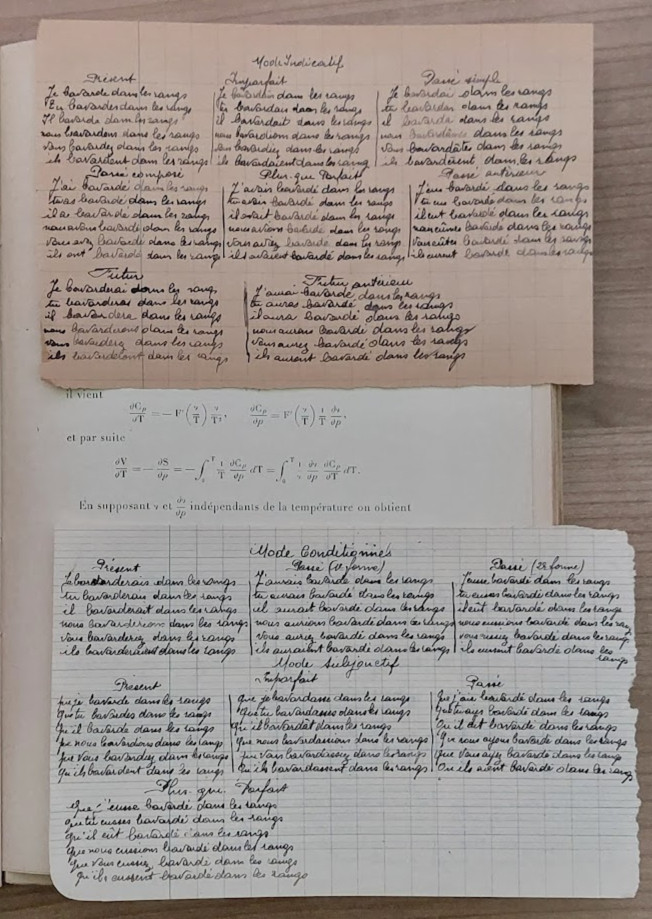 Mode Indicatif
Présent
Je bavarde dans les rangs
Tu bavardes dans les rangs
Il bavarde dans les rangs
nous bavardons dans les rangs
vous bavardez dans les rangs
ils bavardent dans les rangs
Imparfait
Je bavardais dans les rangs
Tu bavardais dans les rangs
il bavardait dans les rangs
nous bavardions dans les rangs
vous bavardiez dans les rangs
ils bavardaient dans les rang
Passé simple
Je bavardai dans les rangs
tu bavardas dans les rangs
il bavarda dans les rangs
nous bavardâmes dans les rangs
vous bavardâtes dans les rangs
ils bavardèrent dans les rangs
Passé composé
J'ai bavardé dans les rangs
tu as bavardé dans les rangs
il a bavardé dans les rangs
nous avons bavardé dans les rangs
vous avez bavardé dans les rangs
ils ont bavardé dans les rangs
Plus-que-Parfait
J'avais bavardé dans les rangs
tu avais bavardé dans les rangs
il avait bavardé dans les rangs
nous avions bavardé dans les rangs
vous aviez bavardé dans les rangs
ils avaient bavardé dans les rangs
Passé antérieur
J'eus bavardé dans les rangs
Tu eus bavardé dans les rangs
il eut bavardé dans les rangs
nous eûmes bavardé dans les rangs
vous eûtes bavardé dans les rangs
ils eurent bavardé dans les rangs
Futur
Je bavarderai dans les rangs
tu bavarderas dans les rangs
il bavardera dans les rangs
nous bavarderons dans les rangs
vous bavarderez dans les rangs
ils bavarderont dans les rangs
Futur antérieur
J'aurai bavardé dans les rangs
tu auras bavardé dans les rangs
il aura bavardé dans les rangs
nous aurons bavardé dans les rangs
vous aurez bavardé dans les rangs
ils auront bavardé dans les rangs
il vient
∂Cp/∂T = − F′(v/T) v/T², ∂Cp/∂p = F′(v/T) 1/T ∂v/∂p,
et par suite
∂V/∂T = − ∂S/∂p = − ∫₀ᵀ 1/T ∂Cp/∂p dT = ∫₀ᵀ 1/v ∂v/∂p ∂Cp/∂T dT.
En supposant v et ∂v/∂p indépendants de la température on obtient
Mode Conditionnel
Présent
Je bavarderais dans les rangs
tu bavarderais dans les rangs
il bavarderait dans les rangs
nous bavarderions dans les rangs
vous bavarderiez dans les rangs
ils bavarderaient dans les rangs
Passé (1e forme)
J'aurais bavardé dans les rangs
tu aurais bavardé dans les rangs
il aurait bavardé dans les rangs
nous aurions bavardé dans les rangs
vous auriez bavardé dans les rangs
ils auraient bavardé dans les rangs
Passé (2e forme)
J'eusse bavardé dans les rangs
tu eusses bavardé dans les rangs
il eût bavardé dans les rangs
nous eussions bavardé dans les rangs
vous eussiez bavardé dans les rangs
ils eussent bavardé dans les
rangs
Mode Subjonctif
Présent
que je bavarde dans les rangs
Que tu bavardes dans les rangs
Qu'il bavarde dans les rangs
que nous bavardions dans les rangs
que vous bavardiez dans les rangs
Qu'ils bavardent dans les rangs
Imparfait
Que je bavardasse dans les rangs
Que tu bavardasses dans les rangs
Qu'il bavardât dans les rangs
Que nous bavardassions dans les rangs
que vous bavardassiez dans les rangs
Qu'ils bavardassent dans les rangs
Passé
Que j'aie bavardé dans les rangs
Que tu ayes bavardé dans les rangs
Qu'il ait bavardé dans les rangs
Que nous ayons bavardé dans les rangs
que vous ayez bavardé dans les rangs
Qu'ils aient bavardé dans les rangs
Plus-que-Parfait
que j'eusse bavardé dans les rangs
que tu eusses bavardé dans les rangs
qu'il eût bavardé dans les rangs
que nous eussions bavardé dans les rangs
que vous eussiez bavardé dans les rangs
qu'ils eussent bavardé dans les rangs